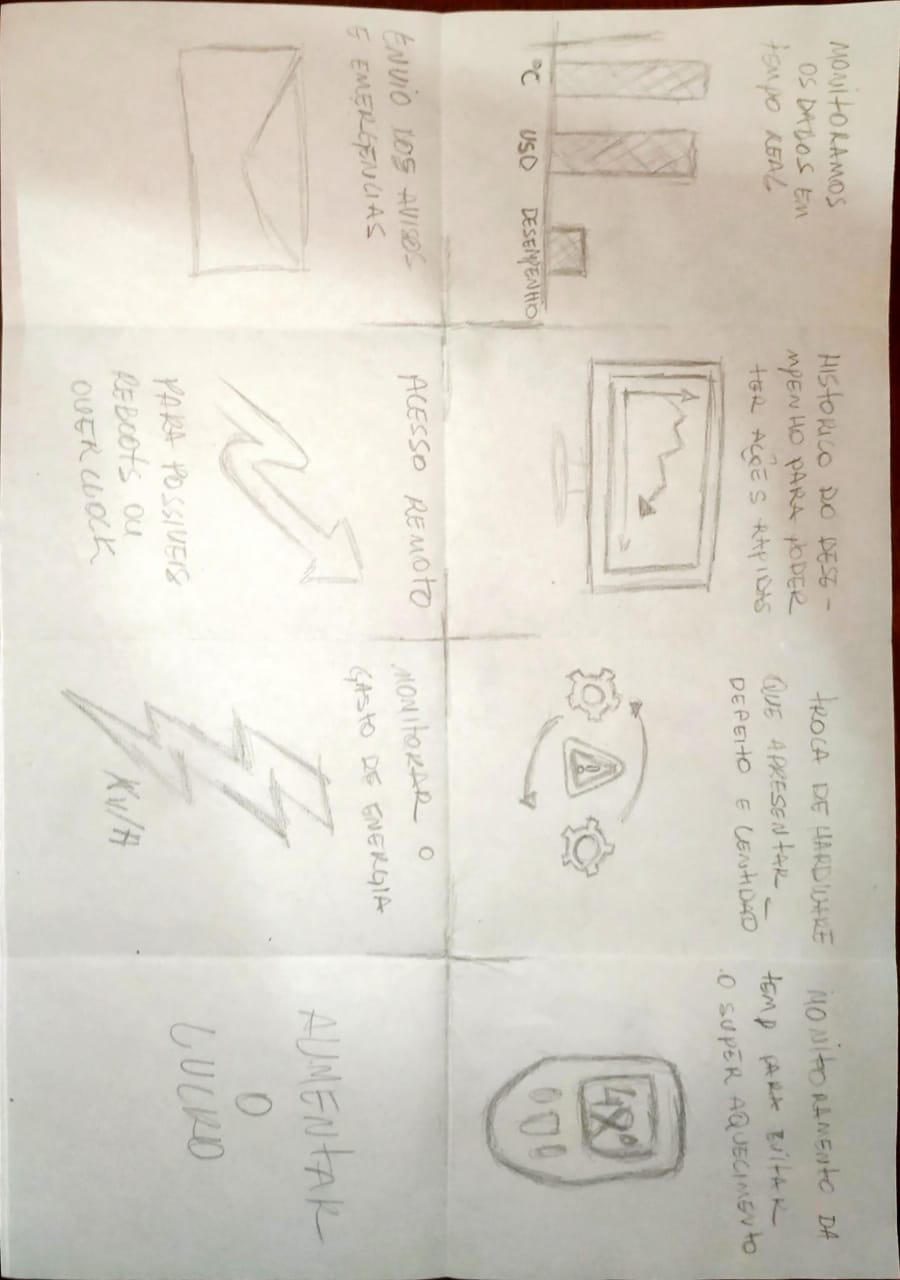 MONITORAMOS
OS DADOS EM
TEMPO REAL
°C USO DESEMPENHO
HISTORICO DO DESE-
MPENHO PARA PODER
TER AÇÕES RAPIDAS
TROCA DE HARDWARE
QUE APRESENTAR
DEFEITO E LENTIDAO
MONITORAMENTO DA
TEMP PARA EVITAR
O SUPER AQUECIMENTO
48°
ENVIO DOS AVISOS
E EMERGÊNCIAS
ACESSO REMOTO
PARA POSSIVEIS
REBOOTS OU
OVERCLOCK
MONITORAR O
GASTO DE ENERGIA
KV/H
AUMENTAR
O
LUCRO